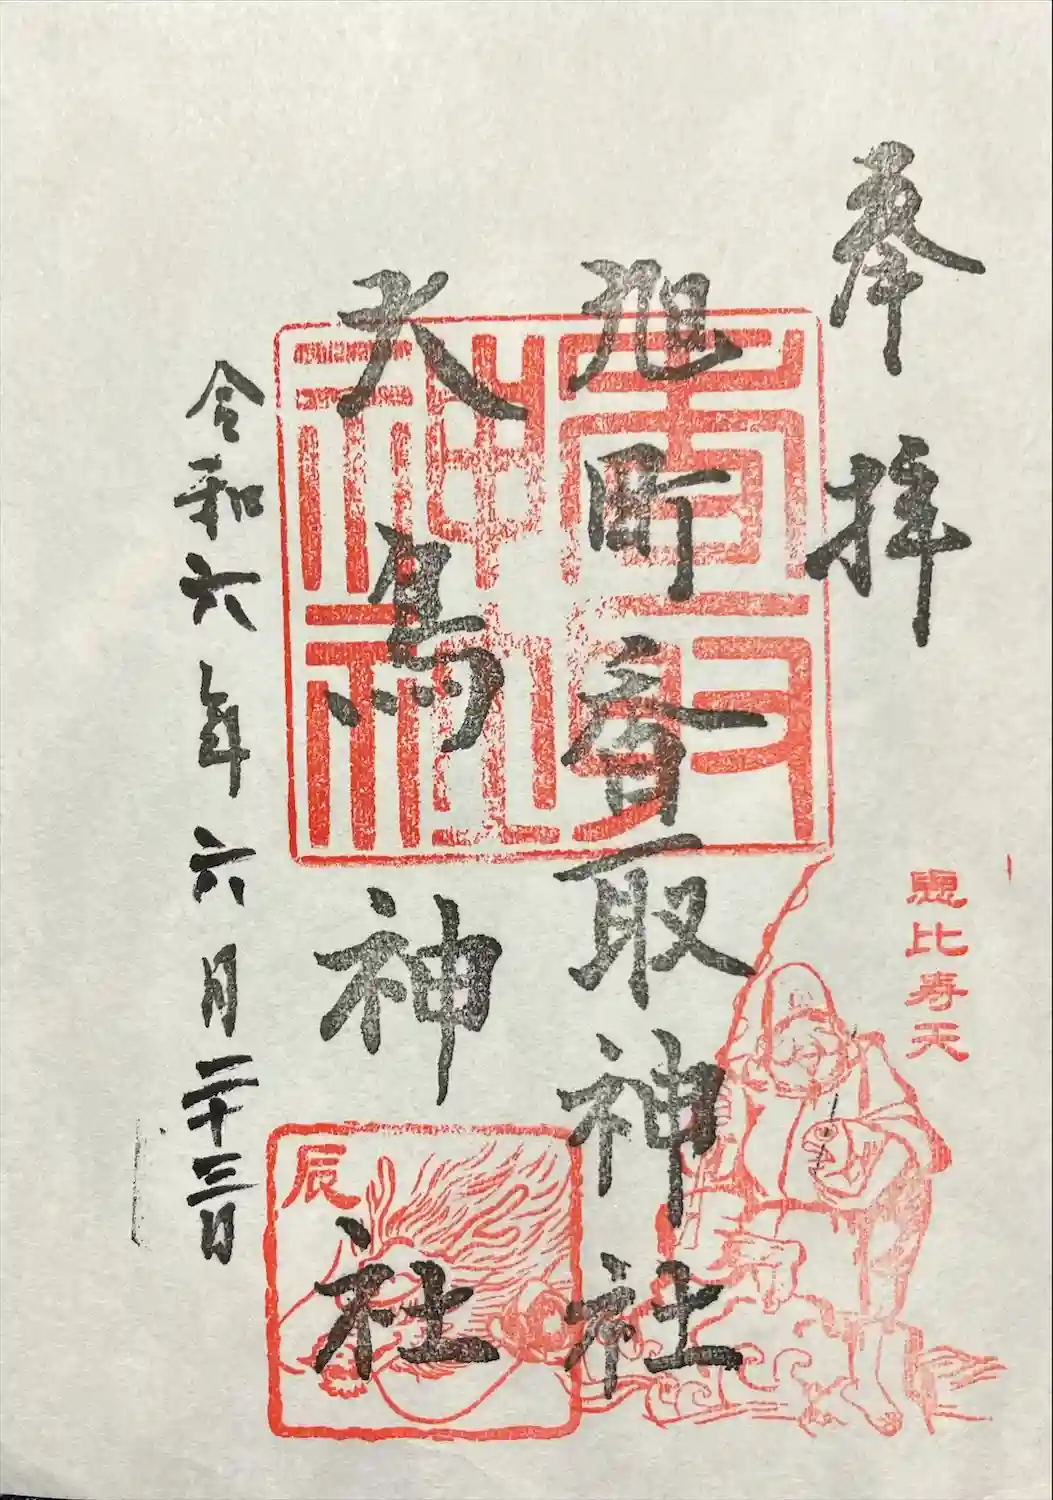 奉拝
恵比寿天
旭町香取神社
香取
神社
大鳥神社
辰
令和六年六月二十三日